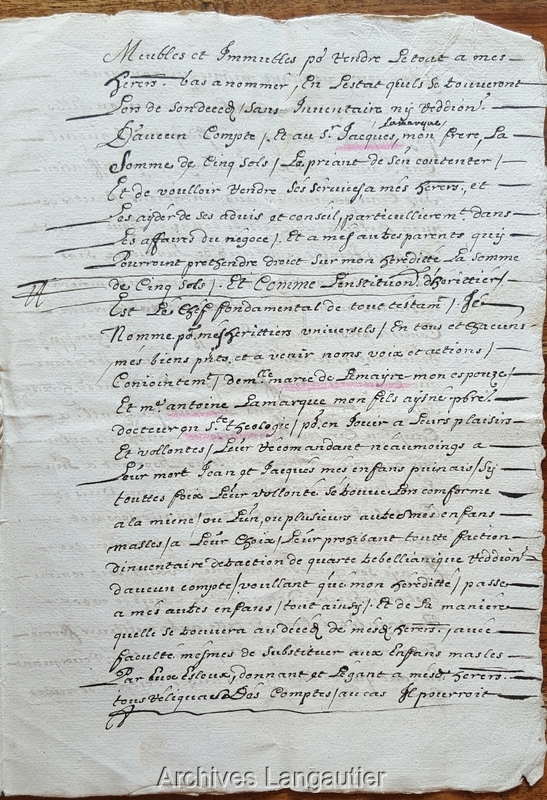 Meubles et Immubles po.r Rendre Le tout a mes
herers. bas a nommer, En L'estat quils se trouveront
Lors de son deced, sans Inventaire ny Reddion.
D'aucun Compte /. Et au Sr. Jacques Lamarque, mon frere, La
Somme de Cinq Sols /. Le priant de s'en contenter /
Et de voulloir Rendre ses services, a mes herers. et
Les ayder de ses advis et conseil, particullierem.t dans
Les affaires du negoce /. Et a mes autres parents quy
Pourroint prethendre droict sur mon hereditté La somme
de Cinq Sols /. Et Comme L'institution d'herittier /
Est Le Chef fondamental de tout testam.t /. Je
Nomme po.r mes herittiers universels / En tous et chacuns
mes biens pnts, et a venir noms, voix et actions /
Conjointem.t / dem.lle marie de Lemayre mon espouze /
Et m.e antoine Lamarque mon fils aysné pbre.
docteur en S.te theologie / po.r en Jouir a Leurs plaisirs
Et vollontes / Leur Recomandant neaumoings a
Leur mort Jean et Jacques mes enfans puinais / Sy
touttes foix Leur vollonte se trouve Lors comforme
a la miene / ou L'un, ou plusieurs autres mes enfans
masles / a Leur choix / Leur prohibant toutte faction
d'inventaire detraction de quarte trebellianique Reddion.
d'aucun compte / voullant que mon hereditté / passe
a mes autres enfans / tout ainsy /. Et de La maniere
quelle se trouvera au deced de mesd. herers. / avec
faculte mesmes de Substituer aux Enfans masles
Par Eux Esleux, donnant et Legant a mesd. herers.
tous Reliquas Dos Comptes / au cas Il pourroit
Archives Langautier